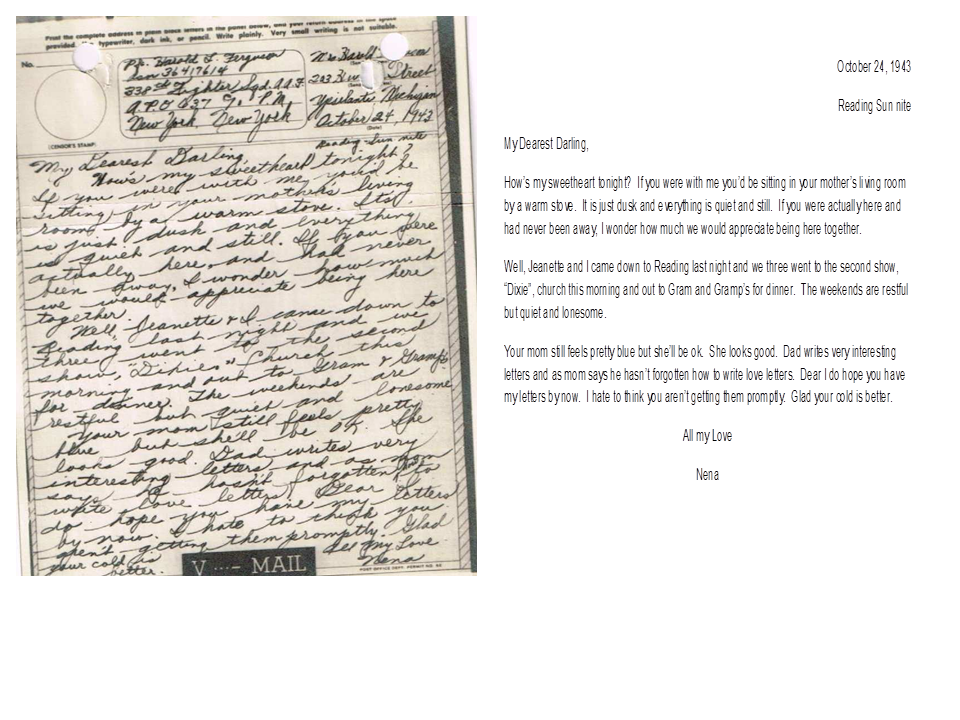 Print the complete address in plain block letters in the panel below, and your return address in the space
provided. Use typewriter, dark ink, or pencil. Write plainly. Very small writing is not suitable.
No.
(CENSOR'S STAMP)
Pfc. Harold L. Ferguson
Ser. 36417614
338th Fighter Sqd. A.A.F.
A.P.O. 637 % P.M.
New York, New York
Mrs. Harold
203 Street
Ypsilanti Michigan
October 24, 1943
(Date)
Reading Sun nite
My Dearest Darling,
How's my sweetheart tonight?
If you were with me you'd be
sitting in your mother's living
room by a warm stove. It's
is just dusk and everything
is quiet and still. If you were
actually here and had never
been away, I wonder how much
we would appreciate being here
together.
Well, Jeanette & I came down to
Reading last night and we
three went to the second
show, "Dixie," Church this
morning and out to Gram & Gramp's
for dinner. The weekends are
restful but quiet and lonesome.
Your mom still feels pretty
blue but she'll be ok. She
looks good. Dad writes very
interesting letters and as mom
says he hasn't forgotten how to
write love letters! Dear I
do hope you have my letters
by now. I hate to think you
aren't getting them promptly. Glad
your cold is
better.
All my Love
Nena
V ···— MAIL
POST OFFICE DEPT. PERMIT NO.
October 24, 1943
Reading Sun nite
My Dearest Darling,
How's my sweetheart tonight? If you were with me you'd be sitting in your mother's living room
by a warm stove. It is just dusk and everything is quiet and still. If you were actually here and
had never been away, I wonder how much we would appreciate being here together.
Well, Jeanette and I came down to Reading last night and we three went to the second show,
"Dixie", church this morning and out to Gram and Gramp's for dinner. The weekends are restful
but quiet and lonesome.
Your mom still feels pretty blue but she'll be ok. She looks good. Dad writes very interesting
letters and as mom says he hasn't forgotten how to write love letters. Dear I do hope you have
my letters by now. I hate to think you aren't getting them promptly. Glad your cold is better.
All my Love
Nena